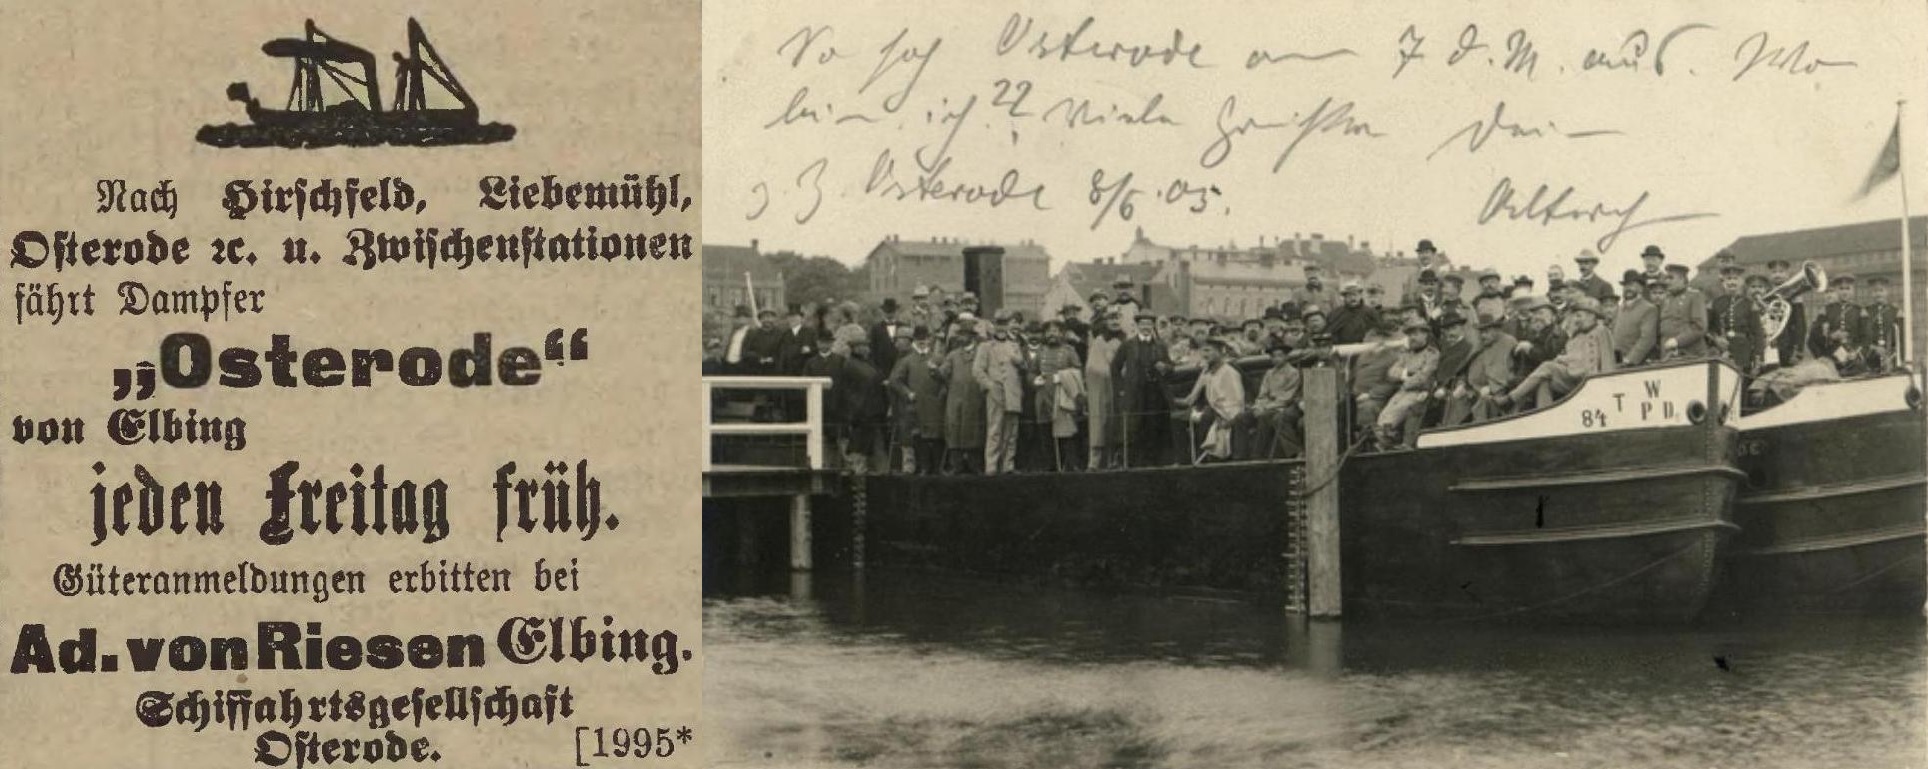 Nach Hirschfeld, Liebemühl,
Osterode ꝛc. u. Zwischenstationen
fährt Dampfer
„Osterode“
von Elbing
jeden Freitag früh.
Güteranmeldungen erbitten bei
Ad. von Riesen Elbing.
Schiffahrtsgesellschaft
Osterode.
[1995*
So sah Osterode am 7 d. M. aus. Wo
bin ich?? Viele Grüße Dein
z. Z. Osterode 8/6.05.
T W
84 P D.